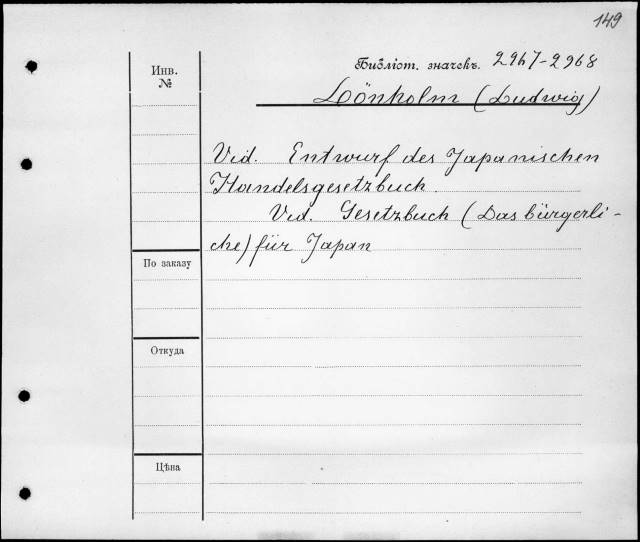 149
Инв.
№
Библіот. значекъ. 2967-2968
Lönholm (Ludwig)
Vid. Entwurf des Japanischen
Handelsgesetzbuch.
Vid. Gesetzbuch (Das bürgerli-
che) für Japan
По заказу
Откуда
Цѣна